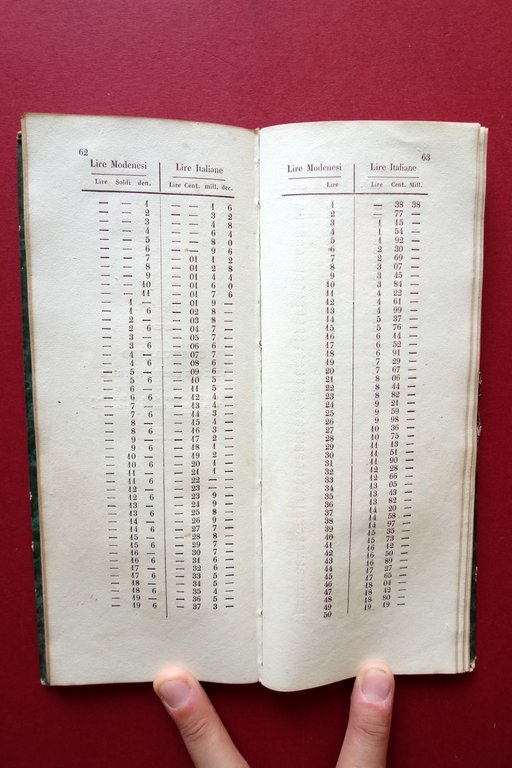 62
Lire Modenesi Lire Italiane
Lire Soldi den. Lire Cent. mill. dec.
— — 1 — — 1 6
— — 2 — — 3 2
— — 3 — — 4 8
— — 4 — — 6 4
— — 5 — — 8 0
— — 6 — — 9 6
— — 7 — 01 1 2
— — 8 — 01 2 8
— — 9 — 01 4 4
— — 10 — 01 6 0
— — 11 — 01 7 6
— 1 — — 01 9 —
— 1 6 — 02 8 —
— 2 — — 03 8 —
— 2 6 — 04 7 —
— 3 — — 05 7 —
— 3 6 — 06 6 —
— 4 — — 07 7 —
— 4 6 — 08 6 —
— 5 — — 09 6 —
— 5 6 — 10 5 —
— 6 — — 11 5 —
— 6 6 — 12 4 —
— 7 — — 13 4 —
— 7 6 — 14 3 —
— 8 — — 15 4 —
— 8 6 — 16 3 —
— 9 — — 17 2 —
— 9 6 — 18 1 —
— 10 — — 19 2 —
— 10 6 — 20 1 —
— 11 — — 21 1 —
— 11 6 — 22 — —
— 12 — — 23 — —
— 12 6 — 23 9 —
— 13 — — 24 9 —
— 13 6 — 25 8 —
— 14 — — 26 9 —
— 14 6 — 27 7 —
— 15 — — 28 8 —
— 15 6 — 29 7 —
— 16 — — 30 7 —
— 16 6 — 31 6 —
— 17 — — 32 6 —
— 17 6 — 33 5 —
— 18 — — 34 5 —
— 18 6 — 35 4 —
— 19 — — 36 5 —
— 19 6 — 37 3 —
63
Lire Modenesi Lire Italiane
Lire Lire Cent. Mill.
1 — 38 38
2 — 77 —
3 1 15 —
4 1 54 —
5 1 92 —
6 2 30 —
7 2 69 —
8 3 07 —
9 3 45 —
10 3 84 —
11 4 22 —
12 4 61 —
13 4 99 —
14 5 37 —
15 5 76 —
16 6 14 —
17 6 52 —
18 6 91 —
19 7 29 —
20 7 67 —
21 8 06 —
22 8 44 —
23 8 82 —
24 9 21 —
25 9 59 —
26 9 98 —
27 10 36 —
28 10 75 —
29 11 13 —
30 11 51 —
31 11 90 —
32 12 28 —
33 12 66 —
34 13 05 —
35 13 43 —
36 13 82 —
37 14 20 —
38 14 58 —
39 14 97 —
40 15 35 —
41 15 73 —
42 16 12 —
43 16 50 —
44 16 89 —
45 17 27 —
46 17 65 —
47 18 04 —
48 18 42 —
49 18 80 —
50 19 19 —